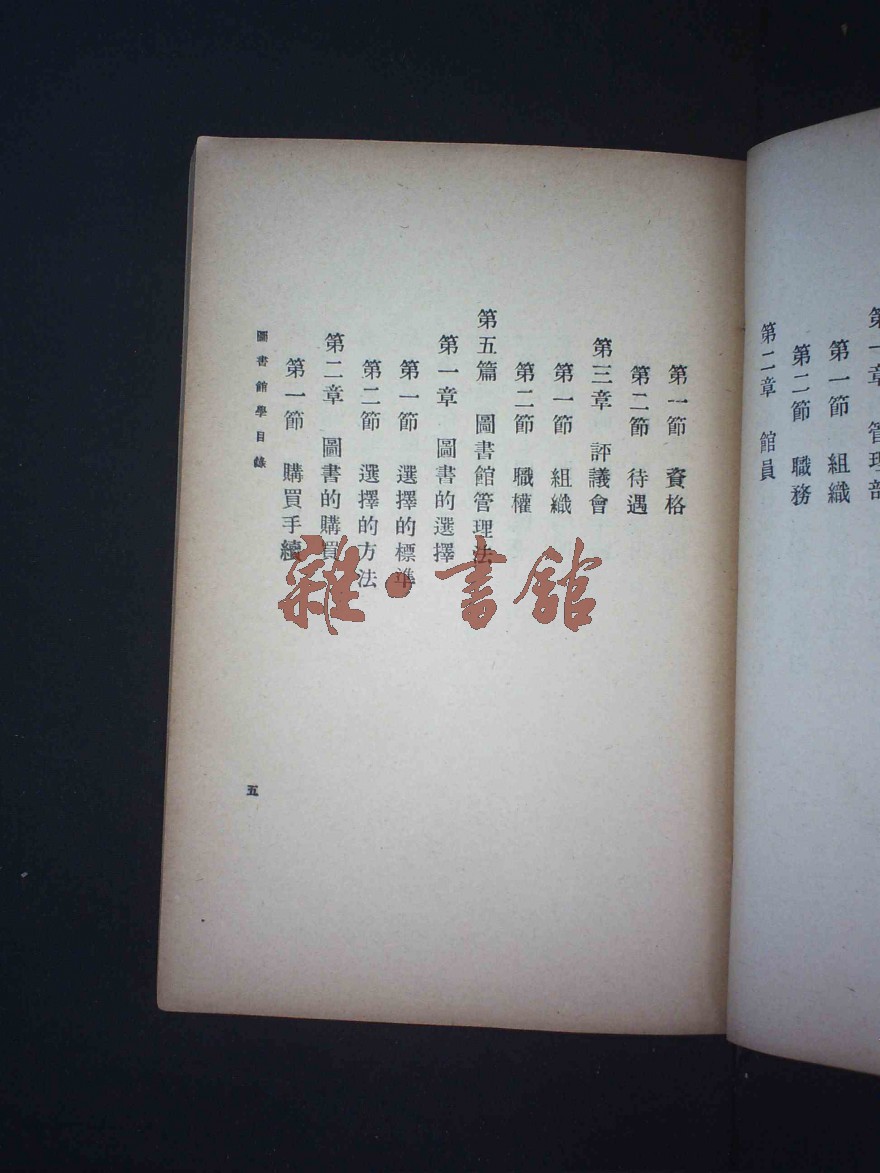 第一章 管理部
第一節 組織
第二節 職務
第二章 館員
第一節 資格
第二節 待遇
第三章 評議會
第一節 組織
第二節 職權
第五篇 圖書館管理法
第一章 圖書的選擇
第一節 選擇的標準
第二節 選擇的方法
第二章 圖書的購買
第一節 購買手續
圖書館學目錄
五
雜·書館